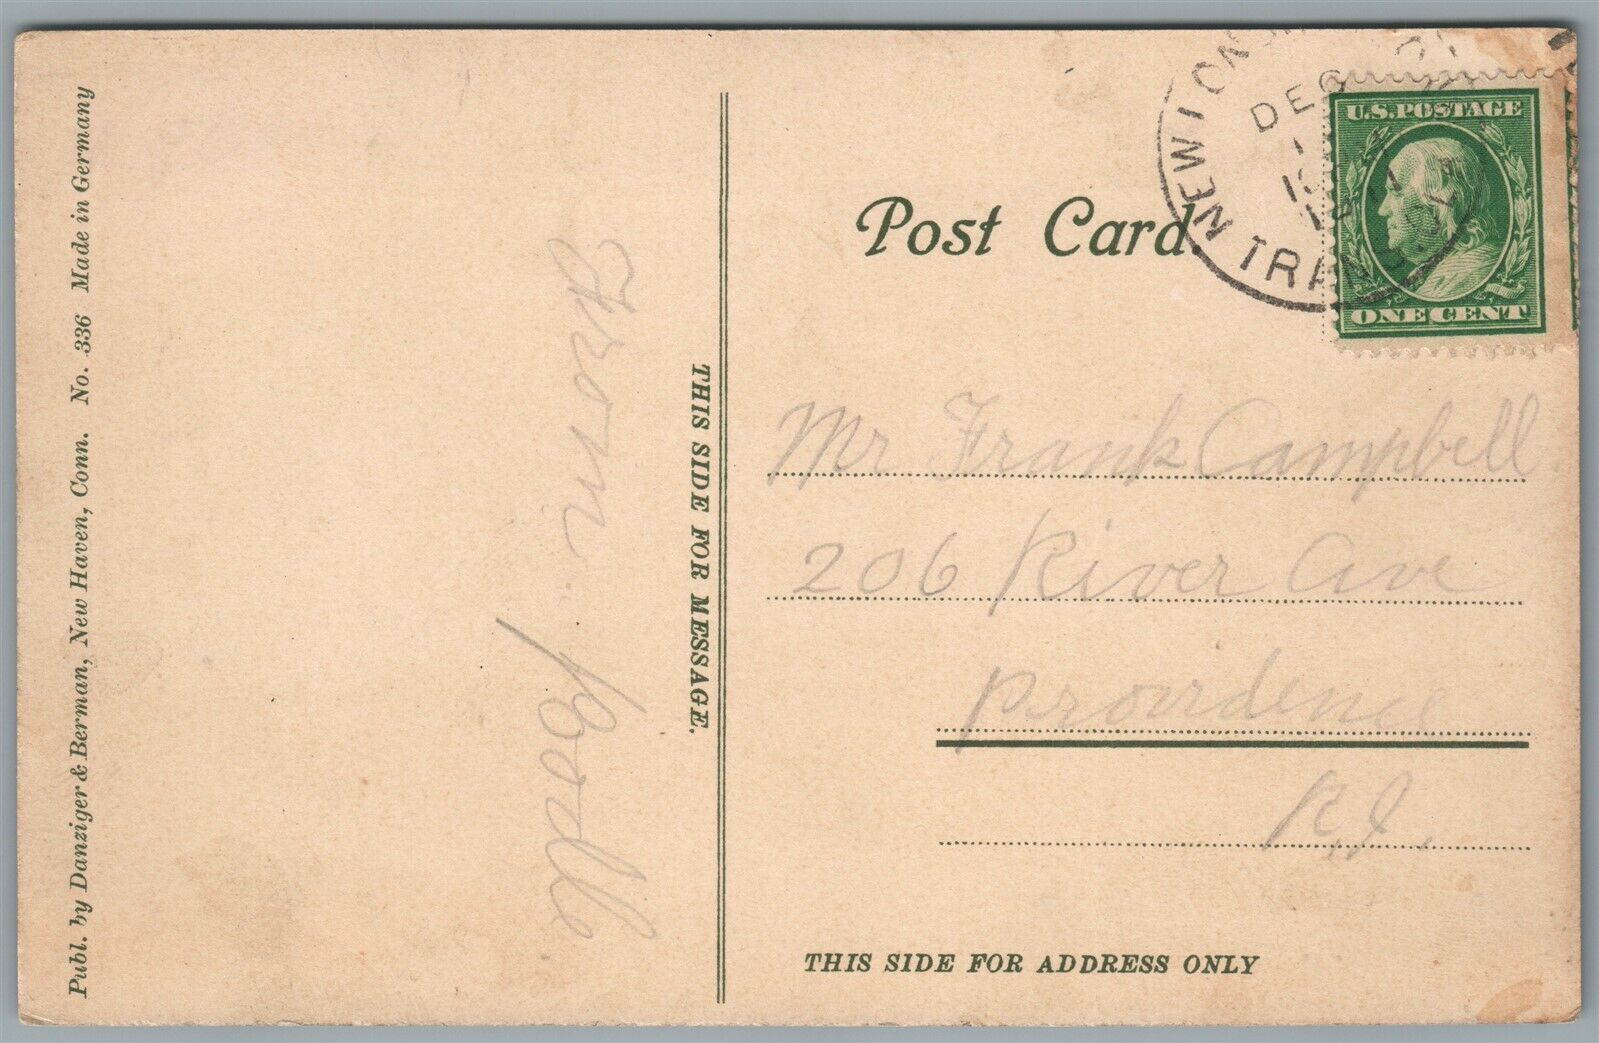 Publ. by Danziger & Berman, New Haven, Conn. No. 336 Made in Germany
From
THIS SIDE FOR MESSAGE.
Post Card.
NEW
DEC
TRAN
U.S. POSTAGE
ONE CENT
Mr Frank Campbell
206 River Ave
Providence
R.I.
THIS SIDE FOR ADDRESS ONLY